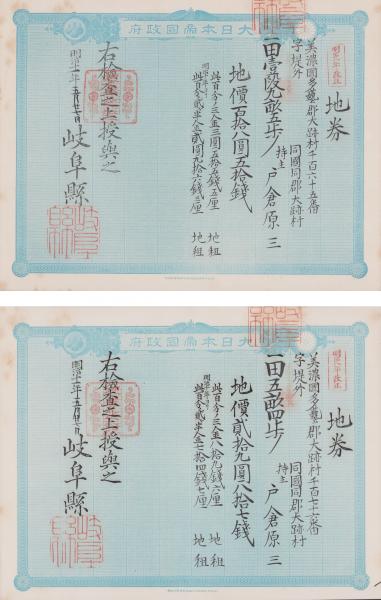 大日本帝國政府
明治九年改正
地券
美濃國多藝郡大跡村千百六十五番
字堤外
同國同郡大跡村
持主 戸倉原三
一田壹段九畝五歩
地價百拾八圓五拾錢
此百分ノ三金三圓五拾五錢五厘 地租
明治十年ヨリ
此百分ノ貳半金貳圓九拾六錢三厘 地租
右檢査之上授與之
明治十一年五月廿七日
岐阜縣
大日本帝國政府
明治九年改正
地券
美濃國多藝郡大跡村千百七十六番
字堤外
同國同郡大跡村
持主 戸倉原三
一田五畝四歩
地價貳拾九圓八拾七錢
此百分ノ三金八拾九錢六厘 地租
明治十年ヨリ
此百分ノ貳半金七拾四錢七厘 地租
右檢査之上授與之
明治十一年五月廿七日
岐阜縣